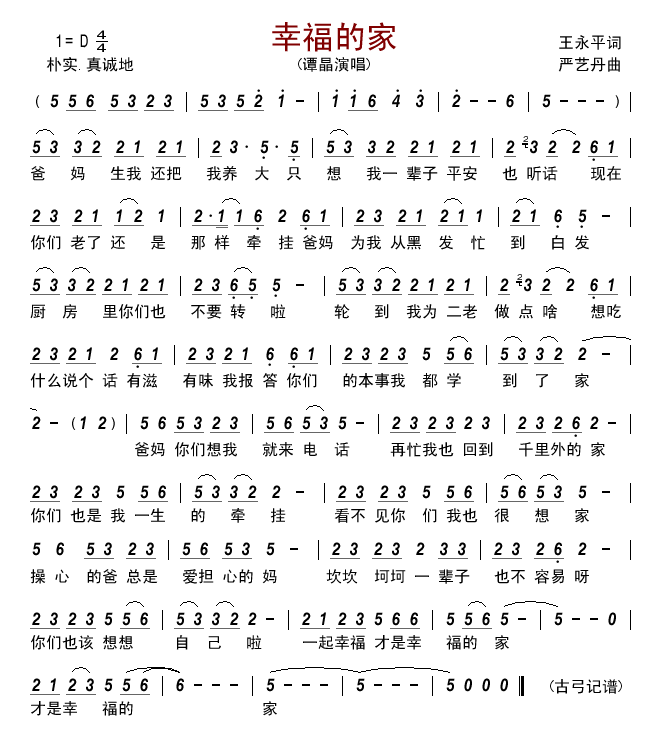 幸福的家
1= D 4/4
王永平词
朴实.真诚地
(谭晶演唱)
严艺丹曲
( 5 5 6 5 3 2 3 | 5 3 5 2 1 - | 1 1 6 4 3 | 2 - - 6 | 5 - - - )
5 3 3 2 2 1 2 1 | 2 3 · 5 · 5 | 5 3 3 2 2 1 2 1 | 2 2 3 2 2 6 1 |
爸 妈 生我 还把 我养 大 只 想 我一 辈子 平安 也 听话 现在
2 3 2 1 1 2 1 | 2 · 1 1 6 2 6 1 | 2 3 2 1 2 1 1 | 2 1 6 5 - |
你们 老了 还 是 那 样 牵 挂 爸妈 为我 从黑 发 忙 到 白 发
5 3 3 2 2 1 2 1 | 2 3 6 5 5 - | 5 3 3 2 2 1 2 1 | 2 2 3 2 6 1 |
厨 房 里你们也 不要 转 啦 轮 到 我为 二老 做 点 啥 想吃
2 3 2 1 2 6 1 | 2 3 2 1 6 6 1 | 2 3 2 3 5 5 6 | 5 3 3 2 2 - |
什么说个 话 有滋 有味 我报 答 你们 的本事我 都 学 到 了 家
2 - ( 1 2 ) | 5 6 5 3 2 3 | 5 6 5 3 5 - | 2 3 2 3 2 2 3 | 2 3 2 6 2 - |
爸妈 你们想我 就来 电 话 再忙我也 回到 千里外的 家
2 3 2 3 5 5 6 | 5 3 3 2 2 - | 2 3 2 3 5 5 6 | 5 6 5 3 5 - |
你们 也是 我 一生 的 牵 挂 看不 见你 们 我也 很 想 家
5 6 5 3 2 3 | 5 6 5 3 5 - | 2 3 2 3 2 3 3 | 2 3 2 6 2 - |
操 心 的爸 总是 爱担 心的 妈 坎坎 坷坷 一 辈子 也不 容易 呀
2 3 2 3 5 5 6 | 5 3 3 2 2 - | 2 1 2 3 5 6 6 | 5 5 6 5 - | 5 - - 0 |
你们也该 想想 自 己 啦 一起幸福 才是幸 福的 家
2 1 2 3 5 5 6 | 6 - - - | 5 - - - | 5 - - - | 5 0 0 0 (古弓记谱)
才是幸 福的 家